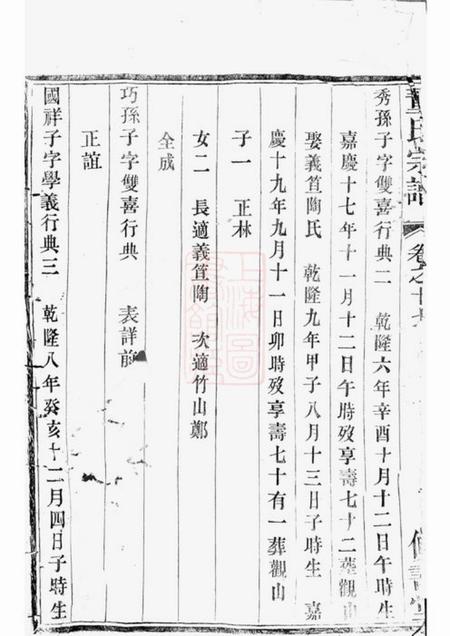 氏宗譜 卷之十七
秀孫子字雙喜行典二 乾隆六年辛酉十月十二日午時生
嘉慶十七年十一月十二日午時歿享壽七十二葬觀山
娶義笪陶氏 乾隆九年甲子八月十三日子時生 嘉
慶十九年九月十一日卯時歿享壽七十有一葬觀山
子一 正林
女二 長適義笪陶 次適竹山鄭
全成
巧孫子字雙喜行典 表詳前
正誼
國祥子字學義行典三 乾隆八年癸亥十二月四日子時生
上海圖